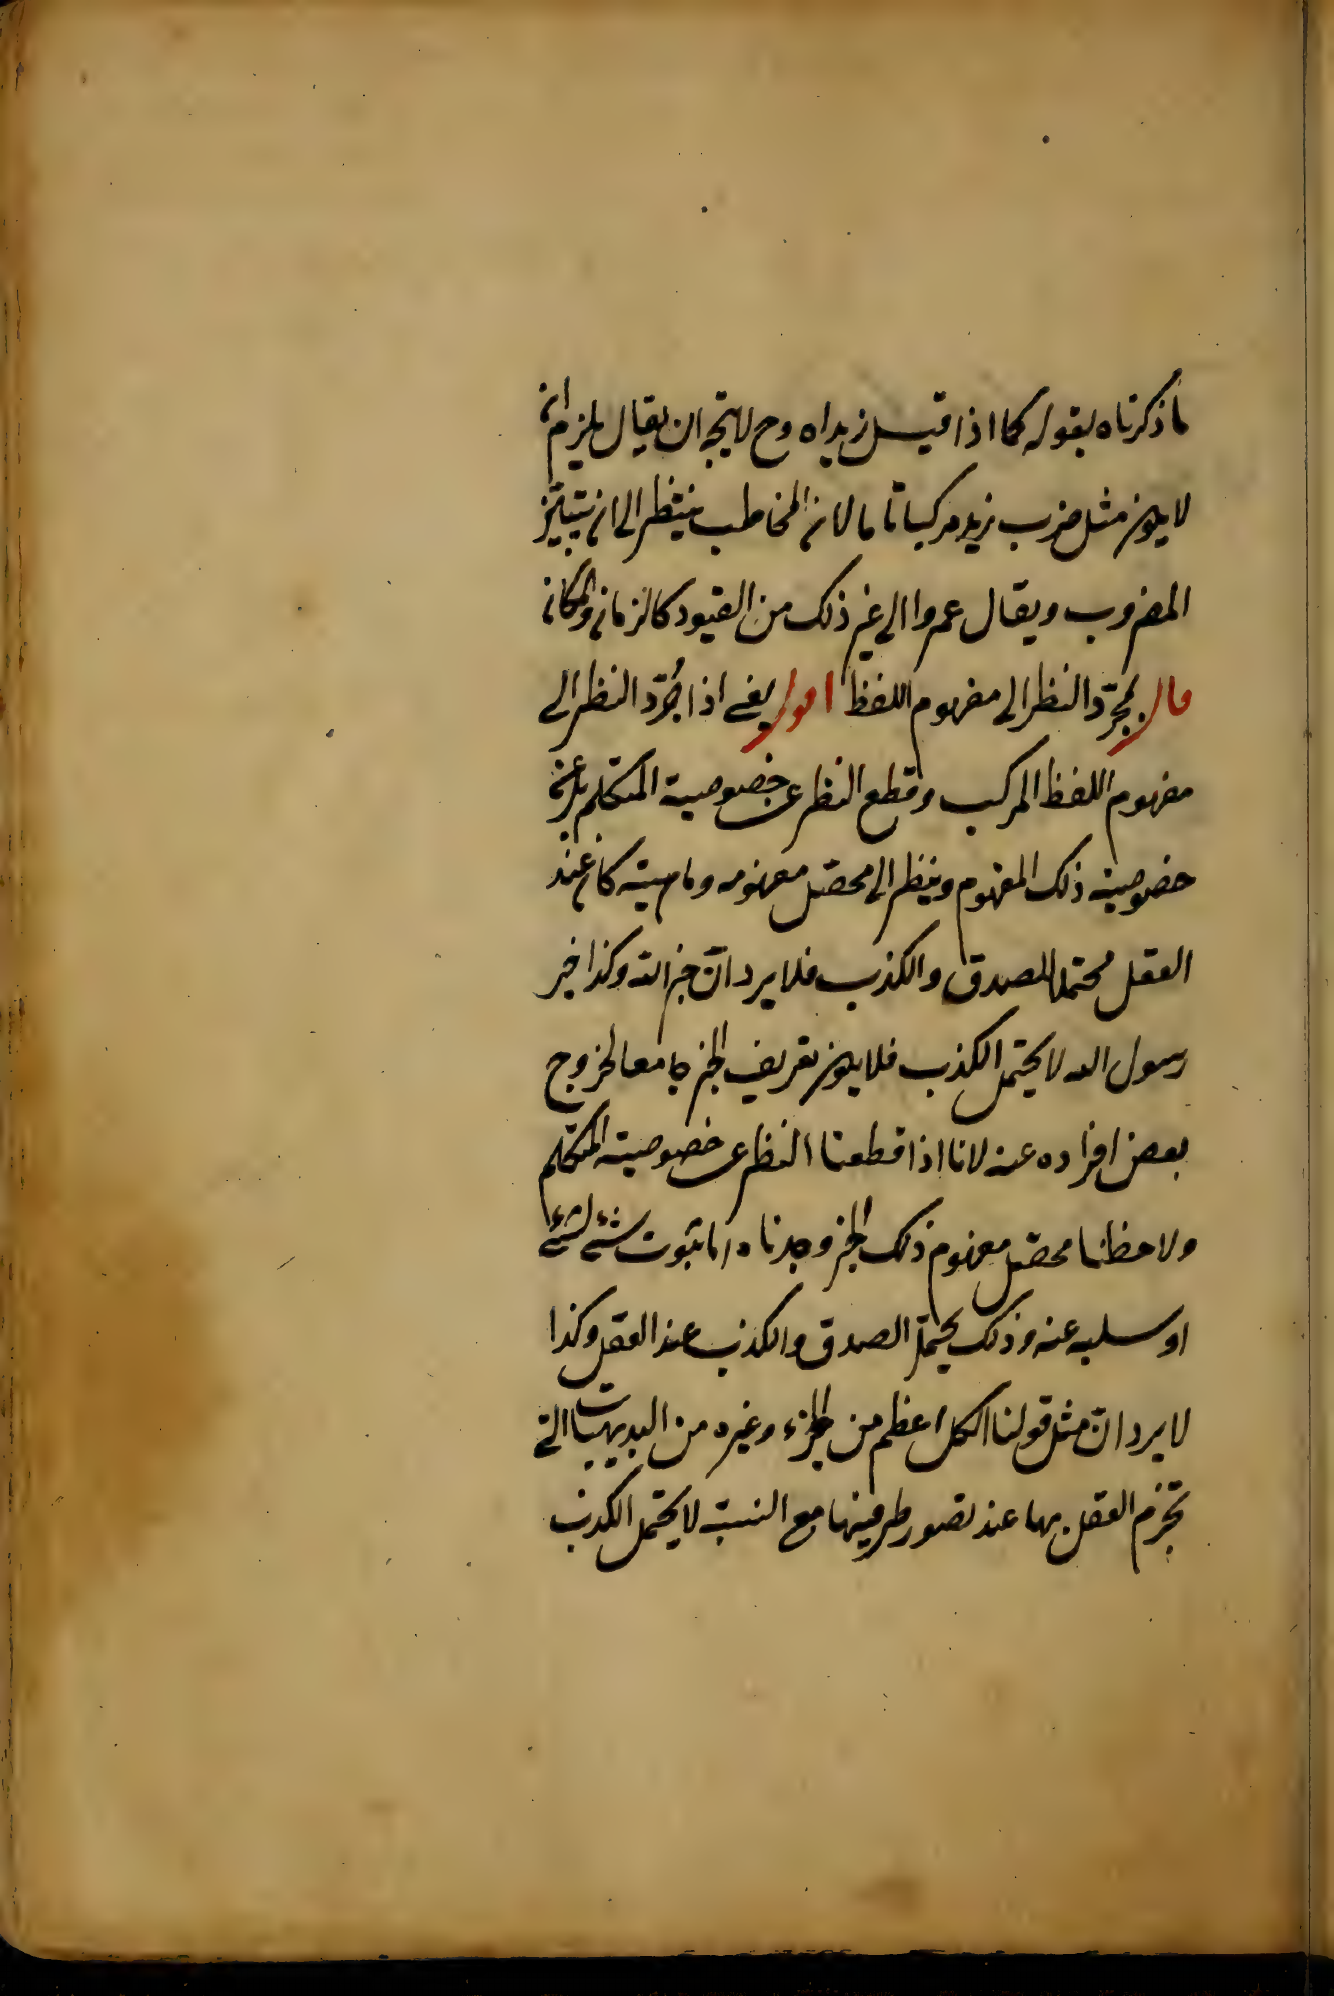 ما ذكرناه بقوله كما اذا قيل زيد اه وح لا يتجه ان يقال يلزم ان
لا يكون مثل ضرب زيد مركبا تاما لان المخاطب ينتظر الى ان يتبين
المضروب ويقال عمروا الى غير ذلك من القيود كالزمان والمكان
قال بمجرّد النظر الى مفهوم اللفظ اقول يعنى اذا جُرّد النظر الى
مفهوم اللفظ المركب وقطع النظر عن خصوصية المتكلم بل عن
خصوصية ذلك المفهوم وينظر الى محصّل مفهومه وماهيته كان عند
العقل محتملا للصدق والكذب فلا يرد انّ خبر الله وكذا خبر
رسول الله لا يحتمل الكذب فلا يكون تعريف الخبر جامعا لخروج
بعض افراده عنه لانا اذا قطعنا النظر عن خصوصية المتكلم
ولاحظنا محصّل مفهوم ذلك الخبر وجدناه اما ثبوت شئ لشئ
او سلبه عنه وذلك يحتمل الصدق والكذب عند العقل وكذا
لا يرد انّ مثل قولنا الكل اعظم من الجزء وغيره من البديهيات التى
تجزم العقل بها عند تصور طرفيها مع النسبة لا يحتمل الكذب